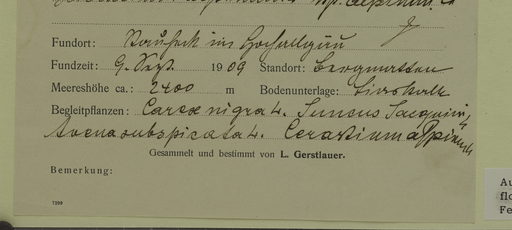 Fundort: Rauheck im Hochallgäu
Fundzeit: 9. Sept. 1909 Standort: Bergmatten
Meereshöhe ca.: 2400 m Bodenunterlage: Liaskalk
Begleitpflanzen: Carex nigra L. Juncus Jacquini,
Avena subspicata L. Cerastium alpinum
Gesammelt und bestimmt von L. Gerstlauer.
Bemerkung:
7299
Au
flo
Fe